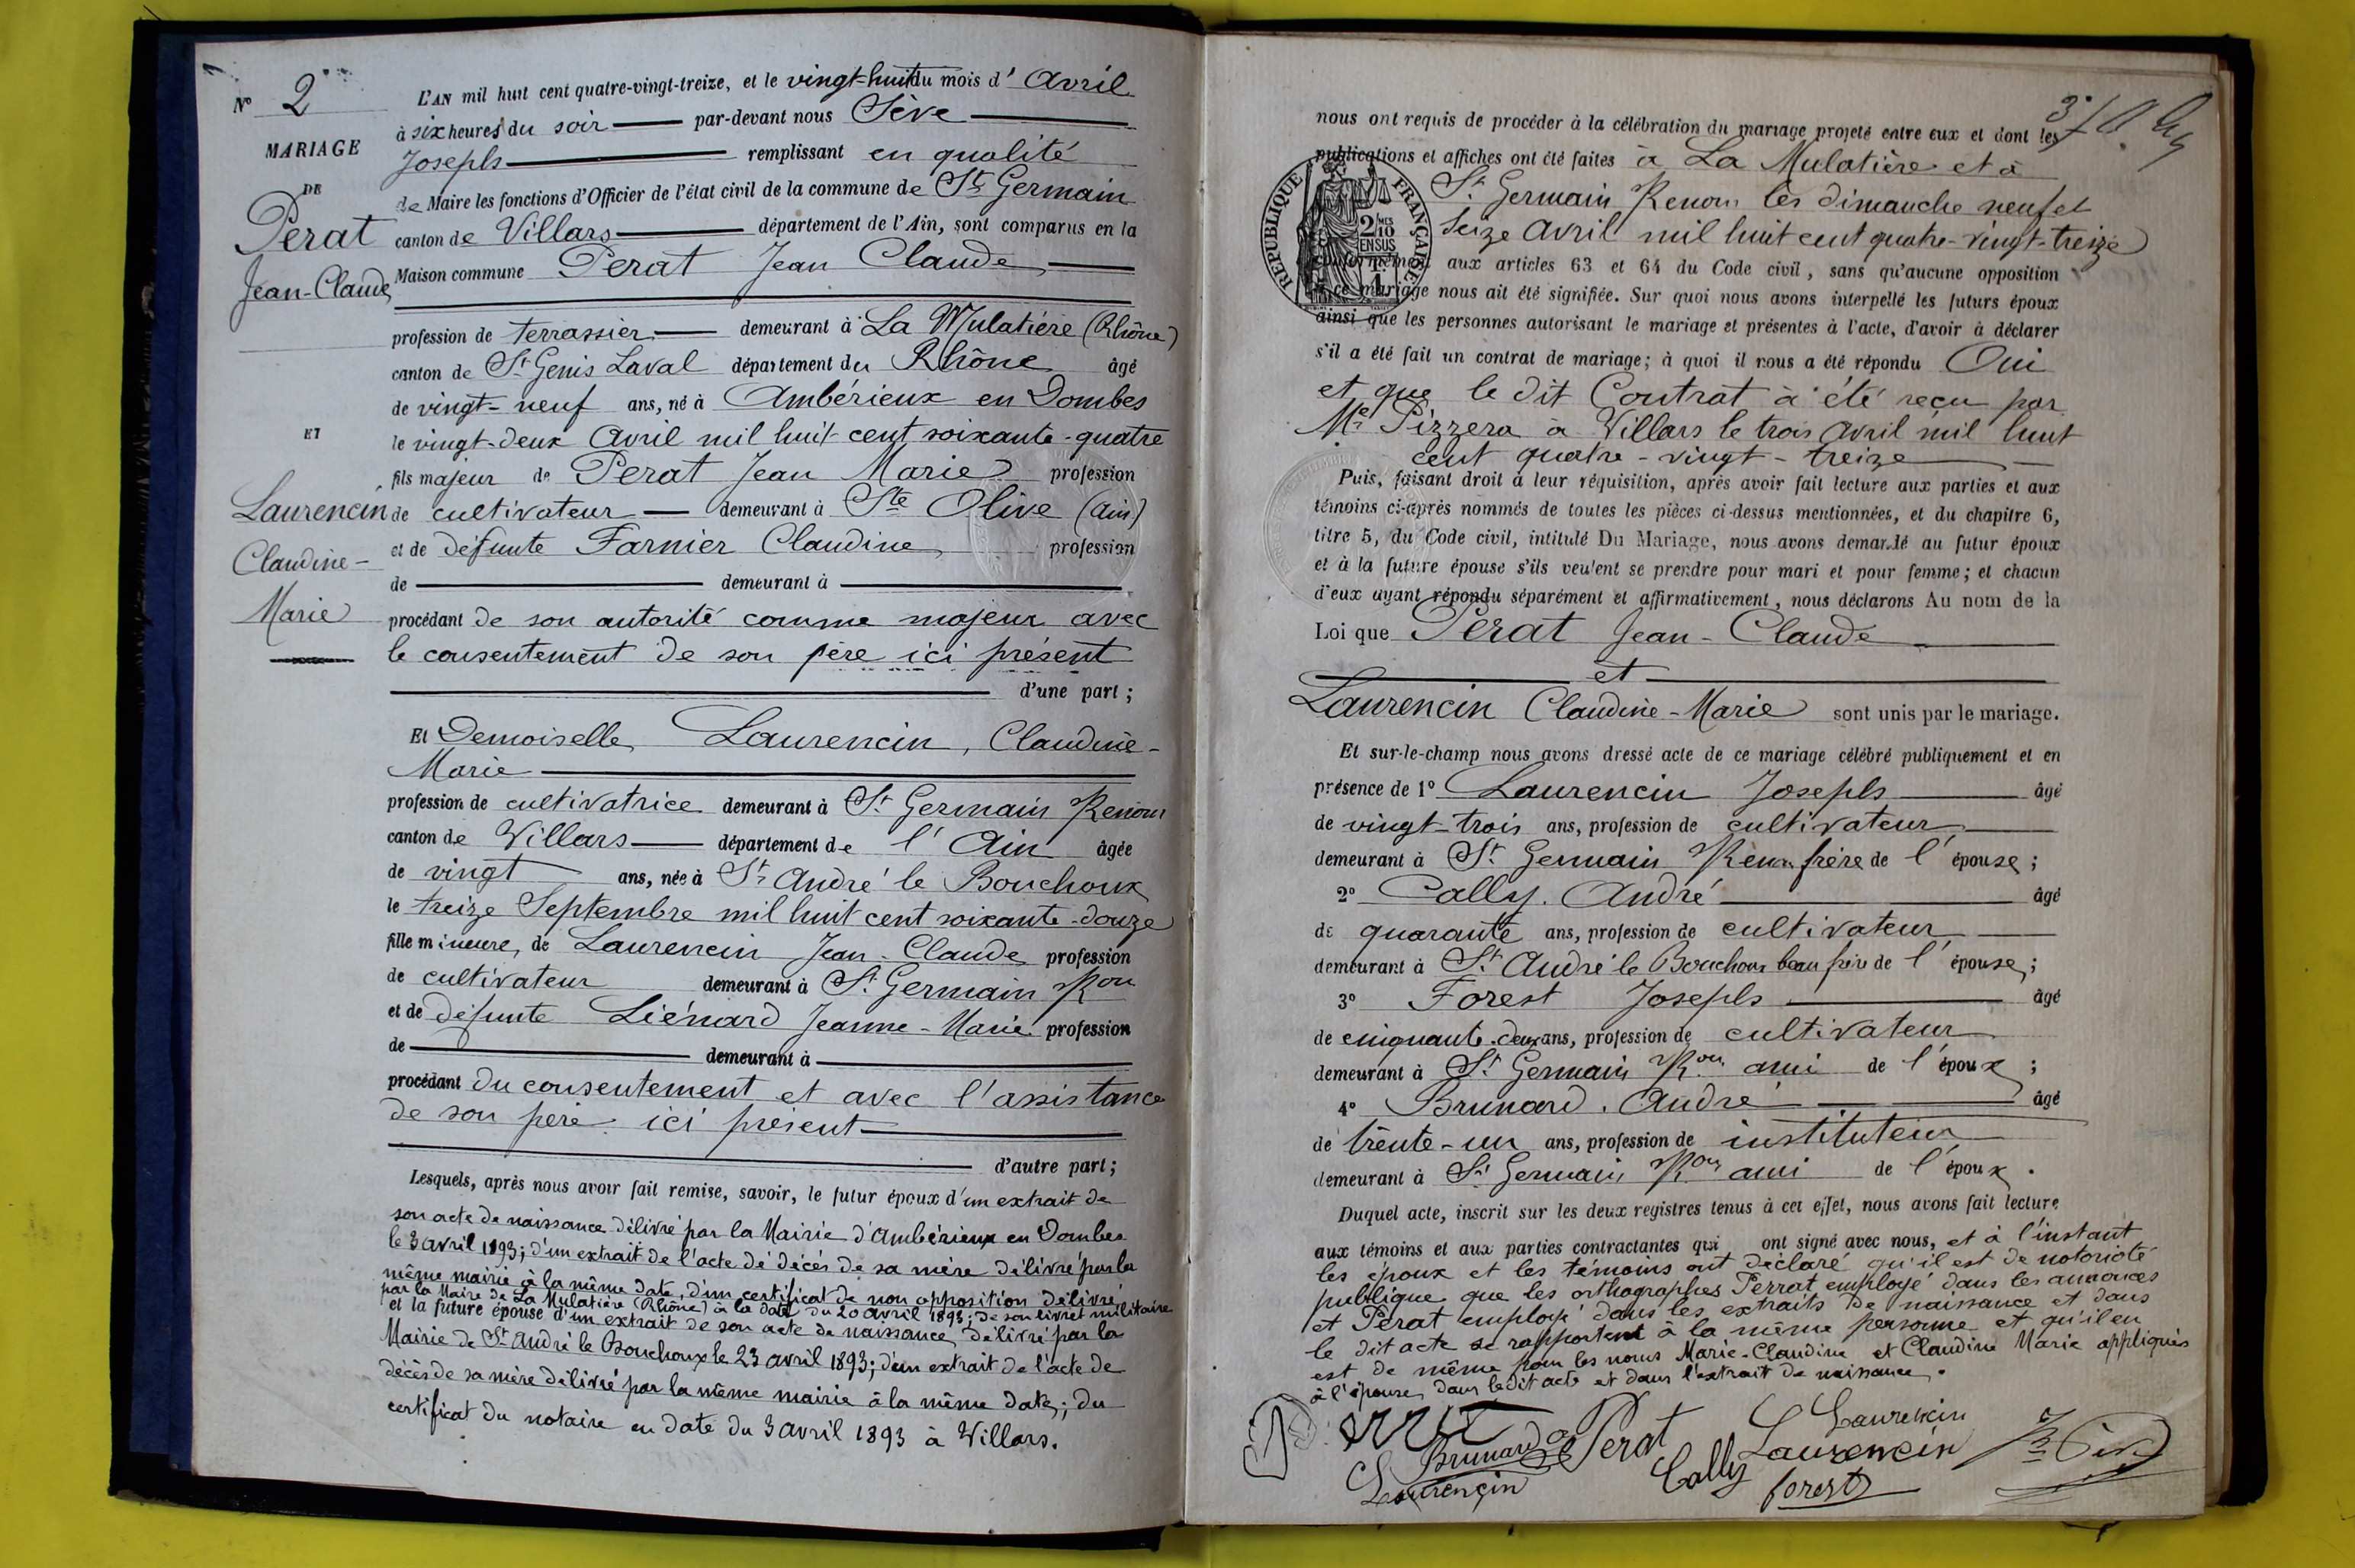 N° 2
MARIAGE
DE
Perat
Jean-Claude
ET
Laurencin
Claudine-
Marie
L'AN mil huit cent quatre-vingt-treize, et le vingt-huit du mois d'Avril
à six heures du soir par-devant nous Sève
Joseph remplissant en qualité
de Maire les fonctions d'Officier de l'état civil de la commune de St Germain
canton de Villars département de l'Ain, sont comparus en la
Maison commune Perat Jean Claude
profession de terrassier demeurant à La Mulatière (Rhône)
canton de St Genis Laval département du Rhône âgé
de vingt-neuf ans, né à Ambérieux en Dombes
le vingt-deux Avril mil huit cent soixante-quatre
fils majeur de Perat Jean Marie profession
de cultivateur demeurant à Ste Olive (Ain)
et de défunte Farnier Claudine profession
de demeurant à
procédant de son autorité comme majeur avec
le consentement de son père ici présent
d'une part ;
Et Demoiselle Laurencin, Claudine-
Marie
profession de cultivatrice demeurant à St Germain Renom
canton de Villars département de l'Ain âgée
de vingt ans, née à St André le Bouchoux
le treize Septembre mil huit cent soixante-douze
fille mineure, de Laurencin Jean-Claude profession
de cultivateur demeurant à St Germain Ron
et de défunte Liénard Jeanne-Marie profession
de demeurant à
procédant du consentement et avec l'assistance
de son père ici présent
d'autre part ;
Lesquels, après nous avoir fait remise, savoir, le futur époux d'un extrait de
son acte de naissance délivré par la Mairie d'Ambérieux en Dombes
le 3 avril 1893; d'un extrait de l'acte de décès de sa mère délivré par la
même mairie à la même date, d'un certificat de non opposition délivré
par la Maire de La Mulatière (Rhône) à la date du 20 avril 1893; de son livret militaire
et la future épouse d'un extrait de son acte de naissance délivré par la
Mairie de St André le Bouchoux le 23 avril 1893; d'un extrait de l'acte de
décès de sa mère délivré par la même mairie à la même date; du
certificat du notaire en date du 3 avril 1893 à Villars.
nous ont requis de procéder à la célébration du mariage projeté entre eux et dont les
publications et affiches ont été faites à La Mulatière et à
St Germain Renom les dimanche neuf et
seize Avril mil huit cent quatre-vingt-treize
conformément aux articles 63 et 64 du Code civil, sans qu'aucune opposition
à ce mariage nous ait été signifiée. Sur quoi nous avons interpellé les futurs époux
ainsi que les personnes autorisant le mariage et présentes à l'acte, d'avoir à déclarer
s'il a été fait un contrat de mariage; à quoi il nous a été répondu Oui
et que le dit Contrat à été reçu par
Me Pizzera à Villars le trois avril mil huit
cent quatre-vingt-treize
RÉPUBLIQUE FRANÇAISE
2/10 MES
EN SUS
Puis, faisant droit à leur réquisition, après avoir fait lecture aux parties et aux
témoins ci-après nommés de toutes les pièces ci-dessus mentionnées, et du chapitre 6,
titre 5, du Code civil, intitulé Du Mariage, nous avons demandé au futur époux
et à la future épouse s'ils veulent se prendre pour mari et pour femme; et chacun
d'eux ayant répondu séparément et affirmativement, nous déclarons Au nom de la
Loi que Perat Jean-Claude
et
Laurencin Claudine-Marie sont unis par le mariage.
Et sur-le-champ nous avons dressé acte de ce mariage célébré publiquement et en
présence de 1° Laurencin Joseph âgé
de vingt-trois ans, profession de cultivateur
demeurant à St Germain Renom frère de l'épouse ;
2° Cally. André âgé
de quarante ans, profession de cultivateur
demeurant à St André le Bouchoux beau frère de l'épouse ;
3° Forest Joseph âgé
de cinquante-deux ans, profession de cultivateur
demeurant à St Germain Ron ami de l'époux ;
4° Brunard. André âgé
de trente-un ans, profession de instituteur
demeurant à St Germain Ron ami de l'époux.
Duquel acte, inscrit sur les deux registres tenus à cet effet, nous avons fait lecture
aux témoins et aux parties contractantes qui ont signé avec nous, et à l'instant
les époux et les témoins ont déclaré qu'il est de notoriété
publique que les orthographes Perrat employé dans les annonces
et Perat employé dans les extraits de naissance et dans
le dit acte se rapportent à la même personne et qu'il en
est de même pour les noms Marie-Claudine et Claudine Marie appliqués
à l'épouse dans le dit acte et dans l'extrait de naissance.
Brunard
Perat
Laurencin
Laurencin
Laurencin
Cally
forest